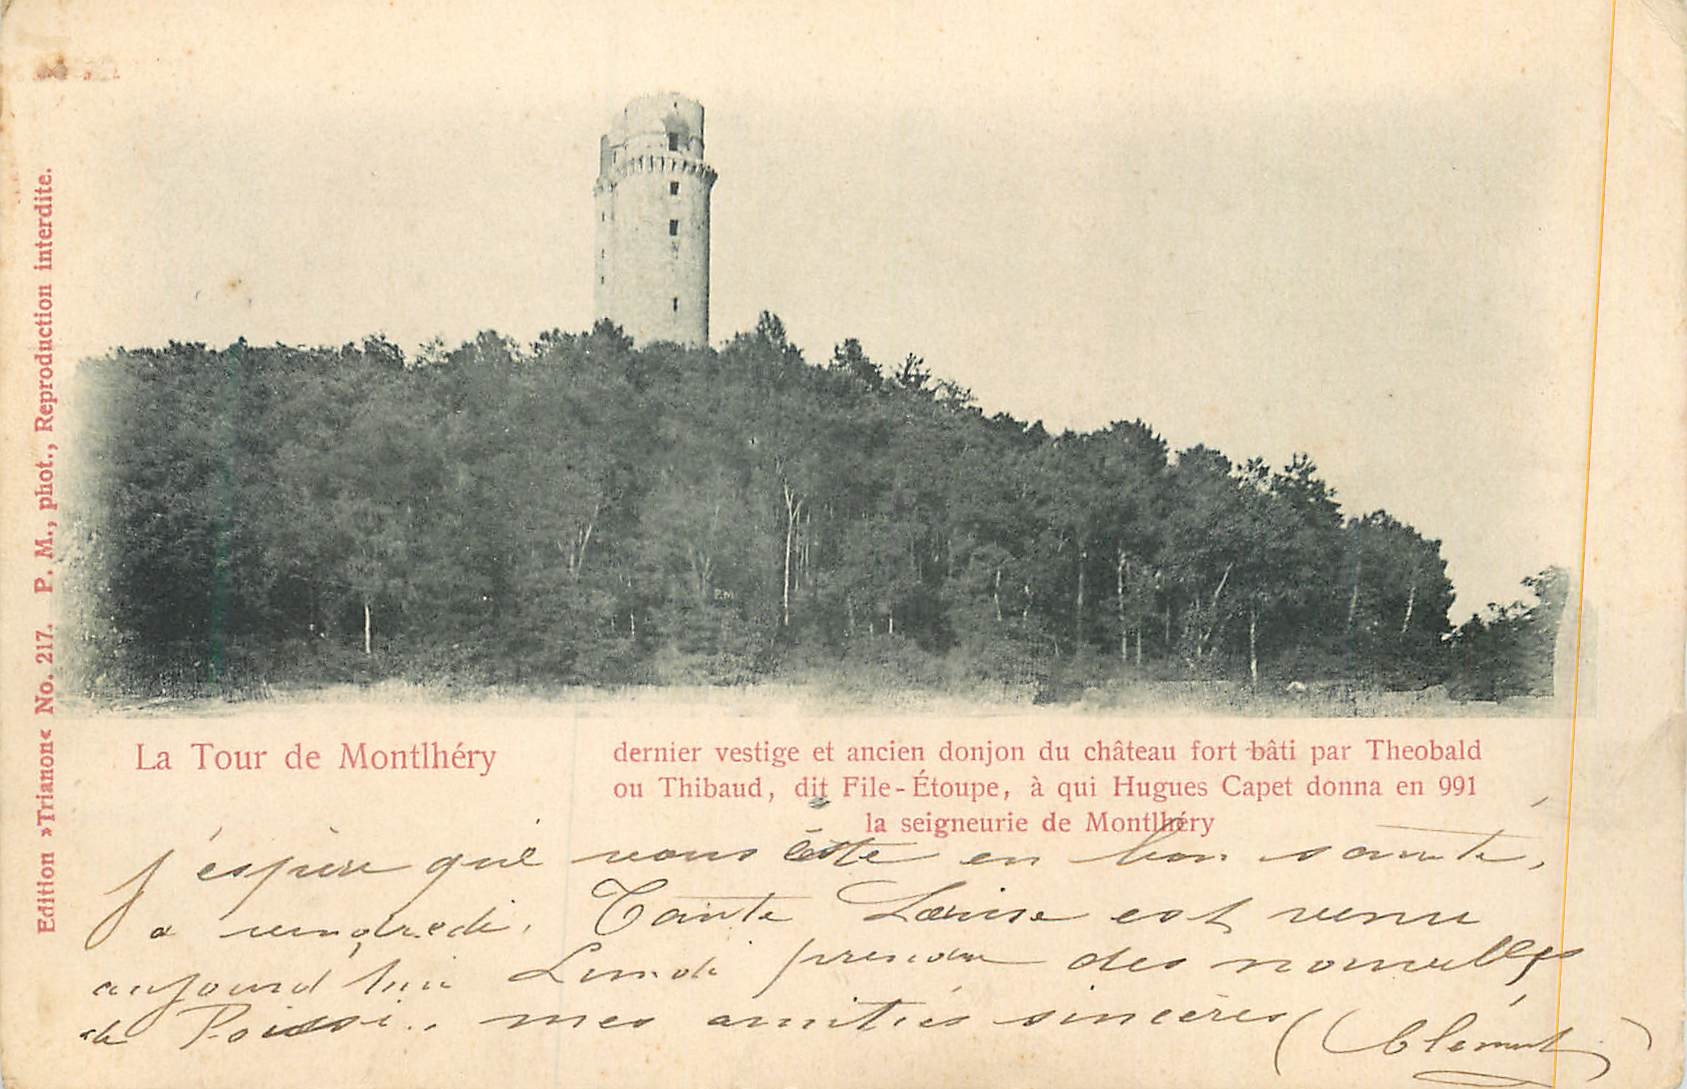 Edition »Trianon« No. 217. P. M., phot., Reproduction interdite.
P.M
La Tour de Montlhéry
dernier vestige et ancien donjon du château fort bâti par Theobald
ou Thibaud, dit File-Étoupe, à qui Hugues Capet donna en 991
la seigneurie de Montlhéry
j'espère que vous ête en bon santé,
a vendredi. Tante Louise est venu
aujourd'hui Lundi prendre des nouvelles
de Poissi., mes amitiés sincères (Clément)